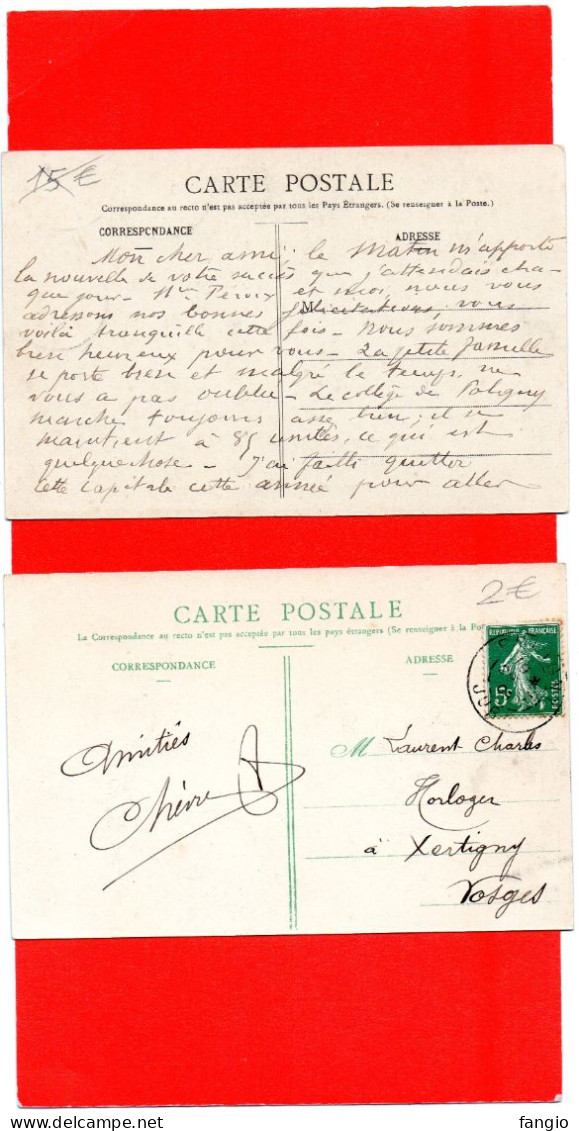 15 €
CARTE POSTALE
Correspondance au recto n'est pas acceptée par tous les Pays Étrangers. (Se renseigner à la Poste.)
CORRESPONDANCE
ADRESSE
Mon cher ami, le Matin m'apporte
la nouvelle de votre succès que j'attendais cha-
que jour - Mme et moi, nous vous
adressons nos bonnes félicitations, vous
voilà tranquille cette fois - Nous sommes
bien heureux pour vous - La petite famille
se porte bien et malgré le temps, ne
vous a pas oublié - Le collège de Poligny
marche toujours assez bien, il se
maintient à 85 unités, ce qui est
quelque chose - J'ai failli quitter
cette capitale cette année pour aller
M
2 €
CARTE POSTALE
La Correspondance au recto n'est pas acceptée par tous les pays étrangers (Se renseigner à la
CORRESPONDANCE
ADRESSE
REPUBLIQUE FRANÇAISE
5c
POSTES
Amitiés
Chèvre
M Laurent Charles
Horloger
à Xertigny
Vosges
fangio